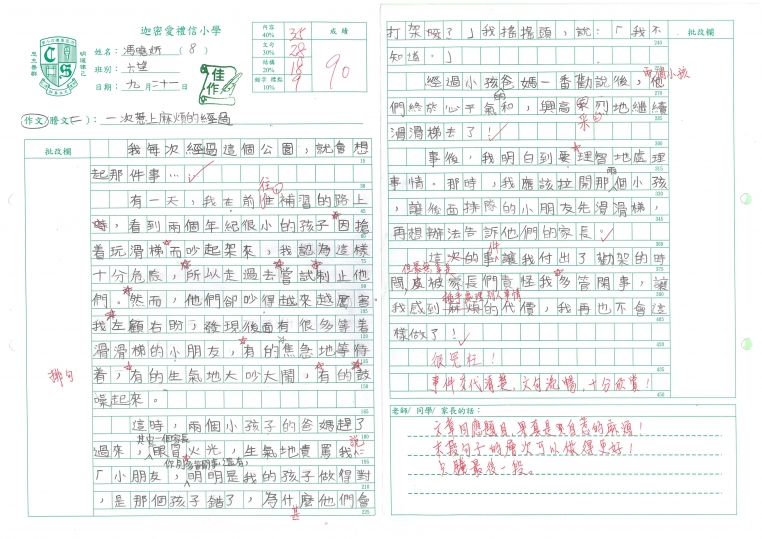 迦密愛禮信小學
姓名：馮曉妍（8）
班別：六望
日期：九月二十一日
佳作
內容 40% 35
文句 30% 28
結構 20% 18
錯字 標點 10% 9
成績
90
作文／謄文（二）：一次惹上麻煩的經過
批改欄
我每次經過這個公園，就會想
起那件事…
有一天，我在前往補習的路上
，看到兩個年紀很小的孩子因搶
着玩滑梯而吵起架來，我認為這樣
十分危險，所以走過去嘗試制止他
們。然而，他們卻吵得越來越厲害
我左顧右盼，發現後面有很多等着
滑滑梯的小朋友，有的焦急地等待
排句
着，有的生氣地大吵大鬧，有的鼓
噪起來。
這時，兩個小孩子的爸媽趕了
過來，其中一個家長眼冒火光，生氣地責罵我說
「小朋友，明明是我的孩子做得對
，是那個孩子錯了，為什麼他們會
甚
打架呀？」我搖搖頭，說：「我不
批改欄
知道。」
經過小孩爸媽一番勸說後，他
兩個小孩
們終於心平氣和，興高采烈地繼續
滑滑梯去了！
事後，我明白到要理智地處理
事情。那時，我應該拉開那兩個小孩
，讓後面排隊的小朋友先滑滑梯，
再想辦法告訴他們的家長。
這次的事件讓我付出了勸架的時
間，被家長們責怪我多管閒事，讓
插手處理別人事情
我感到麻煩的代價，我再也不會這
樣做了！
很冤枉！
事件交代清楚，文句流暢，十分欣賞！
老師/ 同學/ 家長的話：
文章回應題目，果真是自惹的麻煩！
末段句子的層次可以做得更好！
只謄最後一段。